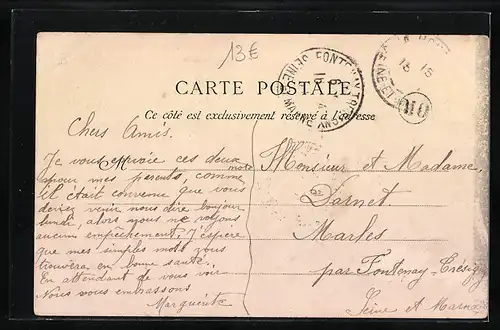 13€
FONTENAY-TRESIGNY
SEINE ET MARNE
CARTE POSTALE
Ce côté est exclusivement réservé à l'adresse
Chers Amis.
Je vous envoie ces deux
mots
pour mes parents, comme
il était convenue que vous
deviez venir nous dire bonjour
lundi, alors nous ne voyons
aucun empêchement. J'espère
que mes simples mots vous
trouvera en bonne santé.
En attendant de vous voir
Nous vous embrassons
Marguerite
Monsieur et Madame
Dornet
Marles
par Fontenay-Trésigny
Seine et Marne